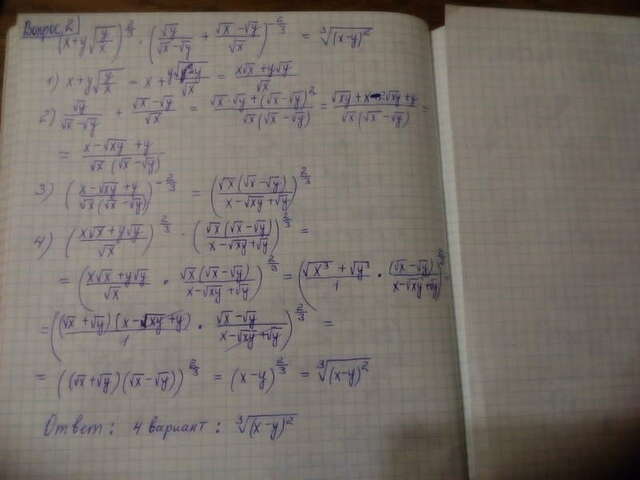 Вопрос 2
(x+y√(y/x))^(2/3) · (√y/(√x-√y) + (√x-√y)/√x)^(-2/3) = ∛((x-y)²)
1) x+y√(y/x) = x + y√y/√x = (x√x+y√y)/√x
2) √y/(√x-√y) + (√x-√y)/√x = (√x·√y+(√x-√y)²)/(√x(√x-√y)) = (√xy+x-2√xy+y)/(√x(√x-√y)) =
= (x-√xy+y)/(√x(√x-√y))
3) ((x-√xy+y)/(√x(√x-√y)))^(-2/3) = (√x(√x-√y)/(x-√xy+√y))^(2/3)
4) ((x√x+y√y)/√x)^(2/3) · (√x(√x-√y)/(x-√xy+√y))^(2/3) =
= ((x√x+y√y)/√x · √x(√x-√y)/(x-√xy+√y))^(2/3) = ((√x³+√y³)/1 · (√x-√y)/(x-√xy+√y))^(2/3)
= ((√x+√y)(x-√xy+y)/1 · (√x-√y)/(x-√xy+√y))^(2/3) =
= ((√x+√y)(√x-√y))^(2/3) = (x-y)^(2/3) = ∛((x-y)²)
Ответ: 4 вариант: ∛((x-y)²)